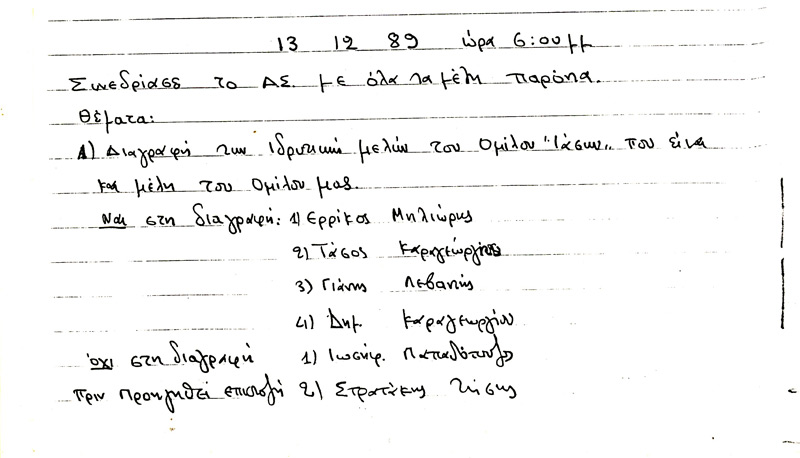 13 12 89 ώρα 6:00 μμ
Συνεδρίασε το ΔΣ. με όλα τα μέλη παρόντα.
Θέματα:
1) Διαγραφή των ιδρυτικών μελών του Ομίλου "Ιάσων" που είναι
και μέλη του Ομίλου μας.
Ναι στη διαγραφή: 1) Ερρίκος Μηλιώρης
2) Τάσος Καραγεώργιου
3) Γιάννης Λεβαντής
4) Δημ Καραγεωργίου
όχι στη διαγραφή 1) Ιωσήφ.
πριν προηγηθεί επιστολή 2) Στρατάκης